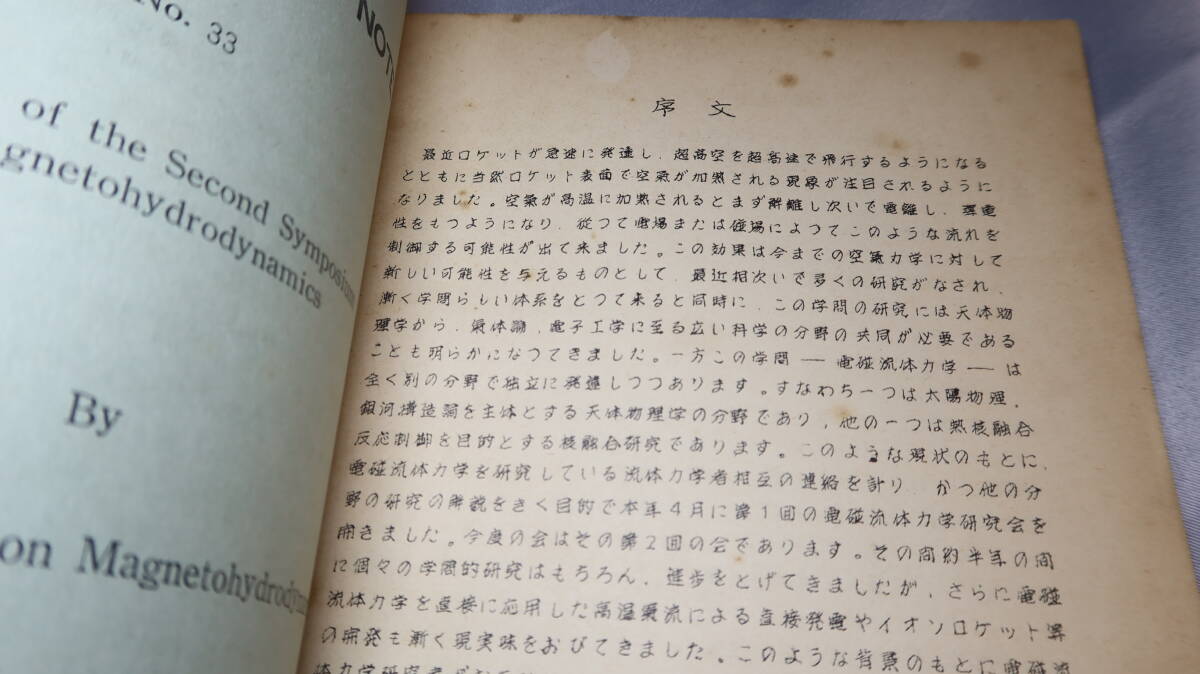 No. 33
NOT
of the Second Symposium
gnetohydrodynamics
By
on Magnetohydrodyna
序文
最近ロケットが急速に発達し、超高空を超高速で飛行するようになる
とともに当然ロケット表面で空気が加熱される現象が注目されるように
なりました。空気が高温に加熱されるとまず解離し次いで電離し、導電
性をもつようになり、従つて電場または磁場によつてこのような流れを
制御する可能性が出て来ました。この効果は今までの空気力学に対して
新しい可能性を与えるものとして、最近相次いで多くの研究がなされ、
漸く学問らしい体系をとつて来ると同時に、この学問の研究には天体物
理学から、気体論、電子工学に至る広い科学の分野の共同が必要である
ことも明らかになつてきました。一方この学問——電磁流体力学——は
全く別の分野で独立に発達しつつあります。すなわち一つは太陽物理、
銀河構造論を主体とする天体物理学の分野であり、他の一つは熱核融合
反応制御を目的とする核融合研究であります。このような現状のもとに、
電磁流体力学を研究している流体力学者相互の連絡を計り、かつ他の分
野の研究の解説をきく目的で本年4月に第1回の電磁流体力学研究会を
開きました。今度の会はその第2回の会であります。その間約半年の間
に個々の学問的研究はもちろん、進歩をとげてきましたが、さらに電磁
流体力学を直接に応用した高温気流による直接発電やイオンロケット等
の開発も漸く現実味をおびてきました。このような背景のもとに電磁流
体力学研究者